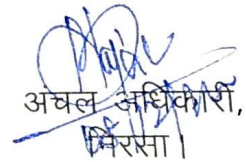 अंचल अधिकारी,
निरसा।